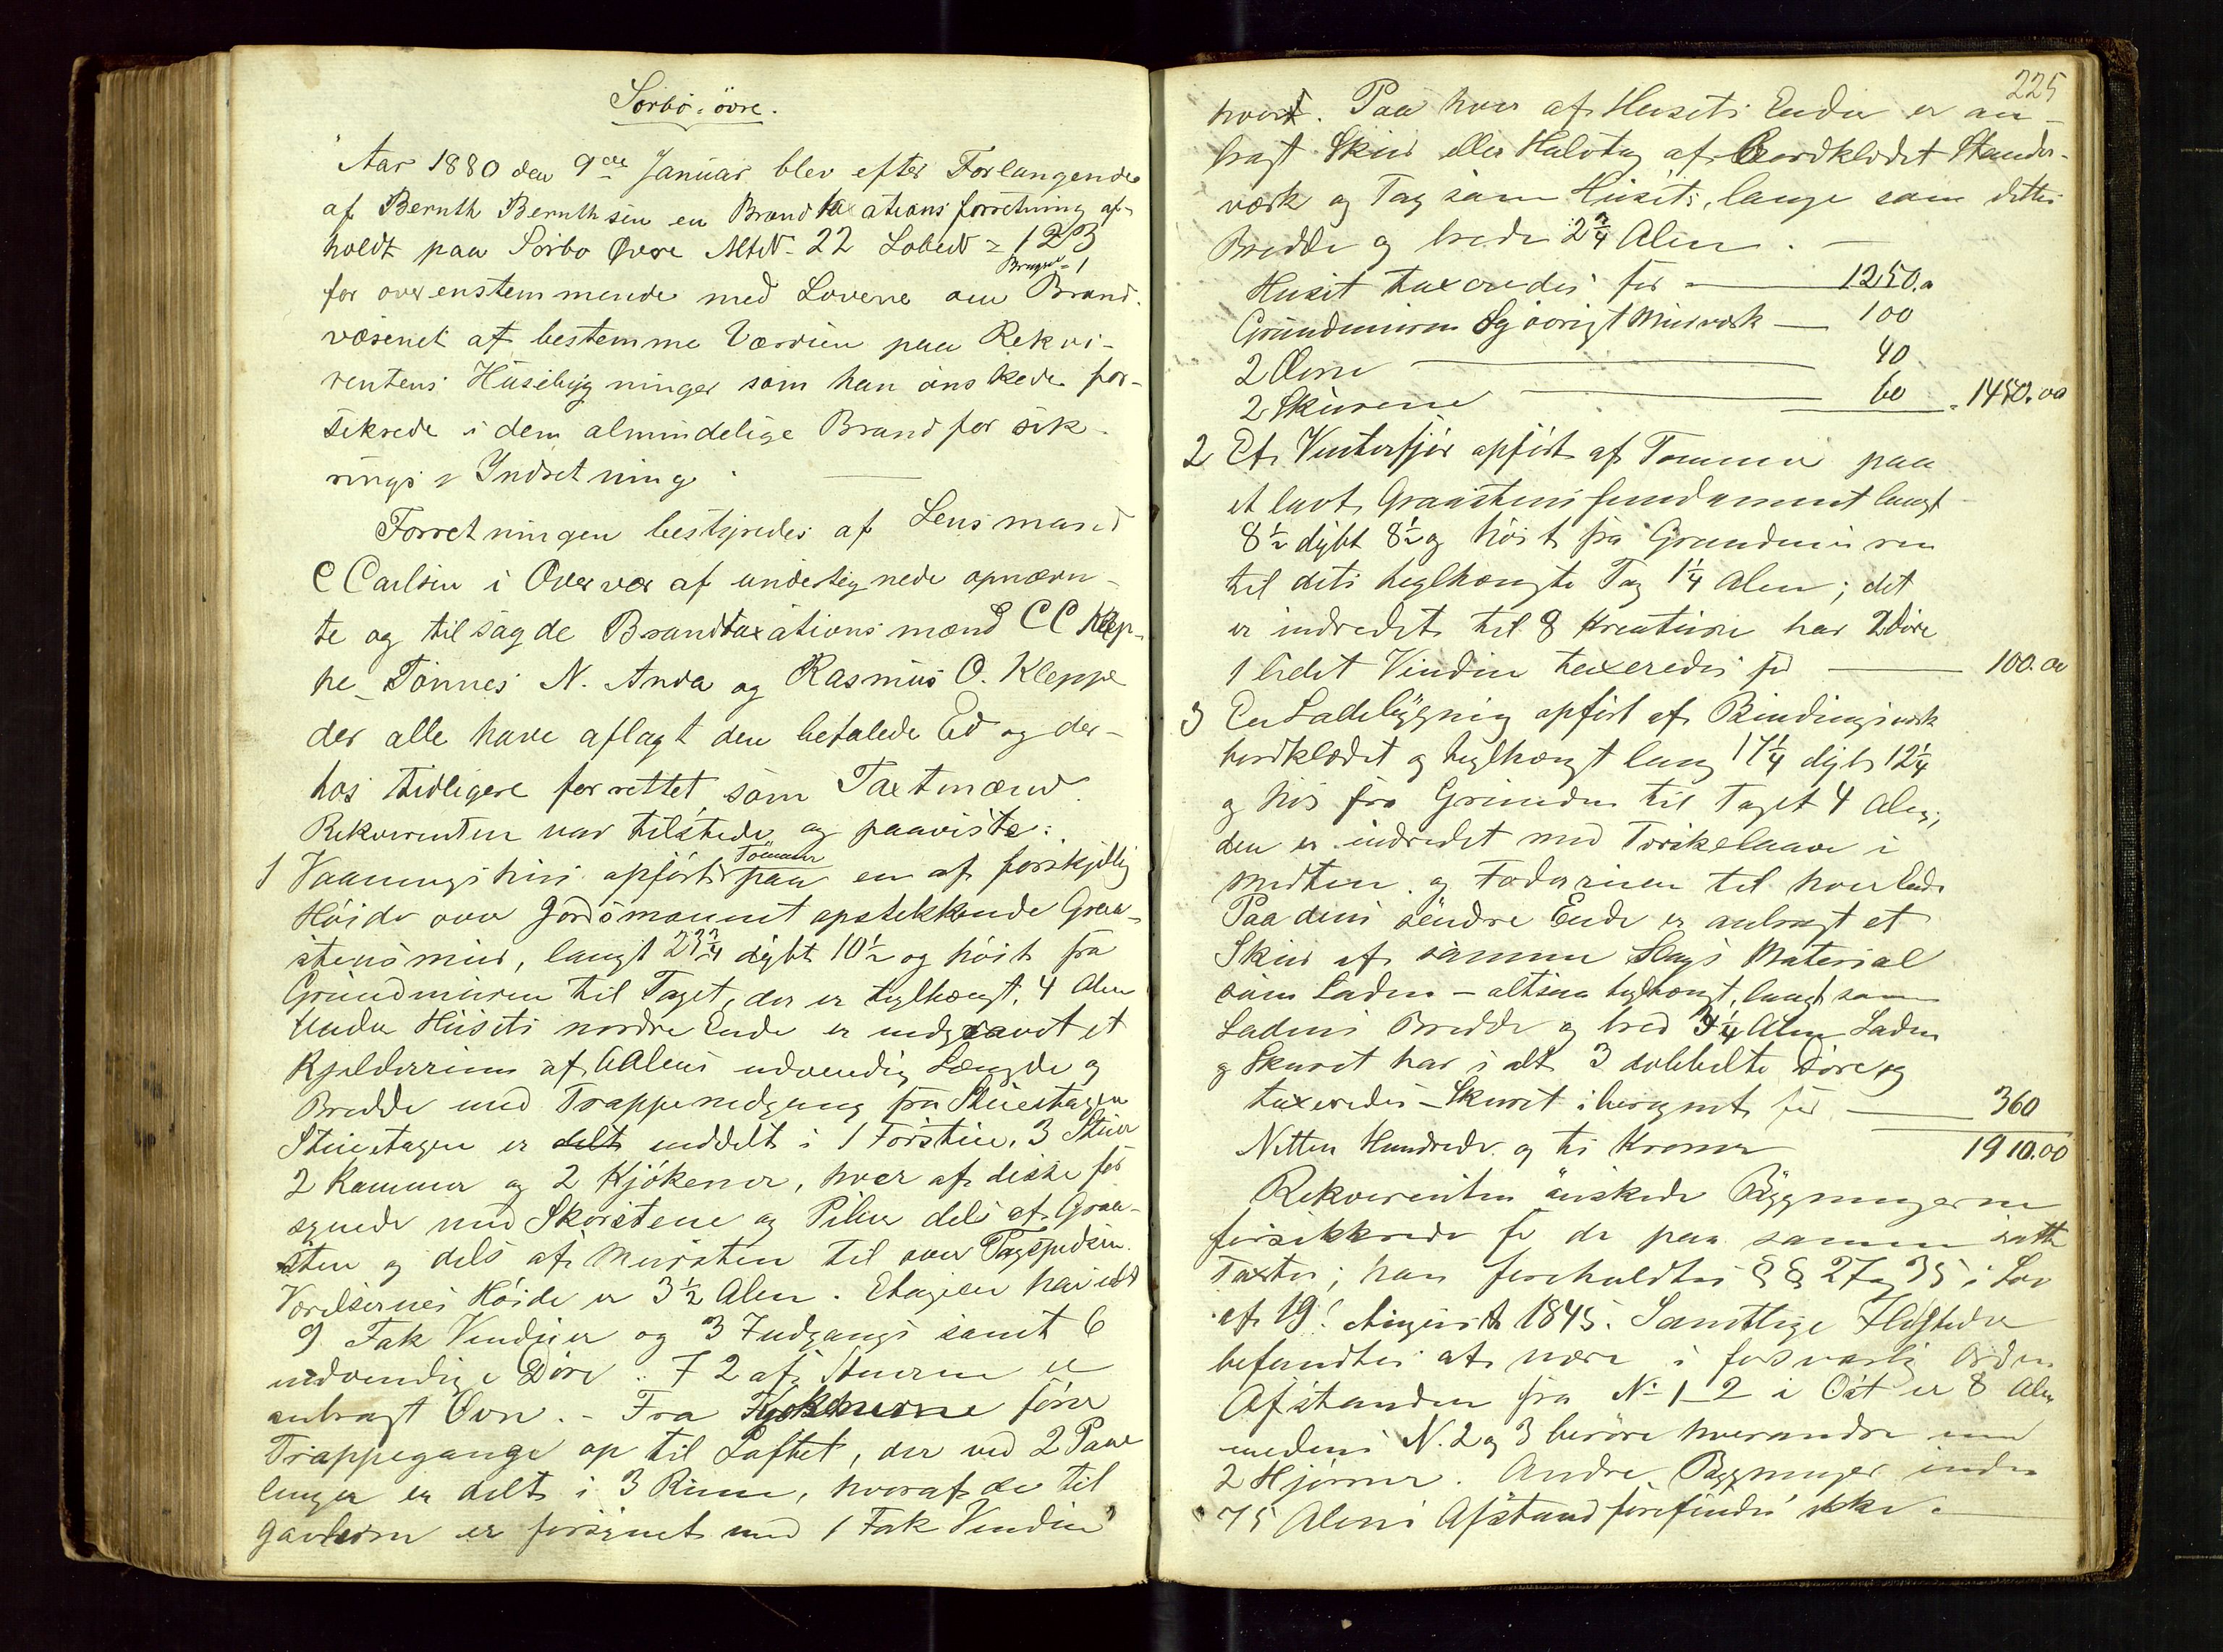 Sørbø. øvre.
Aar 1880 den 9de Januar blev efter Forlangende
af Bernth Bernthsen en Brandtaxationsforretning af-
holdt paa Sørbø Øvre MtN- 22 LøbeN = 123
BrugsN = 1
for overenstemmende med Lovene om Brand-
væsenet at bestemme Værdien paa Rekvi-
rentens Husebygninger som han ønskede for-
sikrede i den almindelige Brandforsik-
rings Indretning
Forretningen bestyredes af Lensmand
C Carlsen i Overvær af undertegnede opnævn-
te og tilsagde Brandtaxationsmænd C C Klep-
pe Tønnes N. Anda og Rasmus O. Kleppe
der alle have aflagt den befalede Ed og der-
hos tidligere forrettet som Taxtmænd.
Rekvirenten var tilstede og paaviste:
1 Vaaningshus opført Tømmer paa en af forskjellig
Høide over Jordsmonnet opstikkende Graa-
stensmur, langt 23 3/4 dybt 10 1/2 og høit fra
Grundmuren til Taget, der er teglhængt, 4 Alen
Under Husets nordre Ende er indgravet et
Kjelderrum af 6 Alens udvendig Længde og
Bredde med Trappenedgang fra Stuestagen
Stuestagen er delt inddelt i 1 Forstue, 3 Stuer
2 Kammer og 2 Kjøkener, hver af disse for
synede med Skorstene og Piber dels af Graa-
sten og dels af Mursten til over Tagspidsen.
Værelsernes Høide er 3 1/2 Alen. Etagen har i alt
9 Fak Vinduer og 3 Indgangs samt 6
indvendige Døre. I 2 af Stuerne er
anbragt Ovn. - Fra Kjøkenerne fører
Trappegange op til Loftet, der ved 2 Pane
linger er delt i 3 Rum, hvoraf de til
Gavlerne er forsynet med 1 Fak Vinduer
225
hvert. Paa hver af Husets Ender er an-
bragt Skur eller Halvtag af Bordklædt Stander-
værk og Tag som Husets, lange som dettes
Bredde og brede 2 3/4 Alen. -
Huset taxeredes for - 1250.
Grundmuren og øvrigt Murværk - 100
2 Ovne 40
2 Skurene 60 1450.00
2 Et Vinterfjøs opført af Tømmer paa
et lavt Graastensfundament langt
8 1/2 dybt 8 1/2 og høit fra Grundmuren
til dets teglhængte Tag 1 1/4 Alen; det
er indredet til 8 Kreature har 2 Døre
1 lidet Vindu taxeredes for 100.00
3 En Ladebygning opført af Bindingsværk
bordklædet og teglhængt lang 17 1/4 dyb 12 1/4
og høi fra Grunden til Taget 4 Alen;
den er indredet med Tørskelaave i
Midten og Foderrum til hver Ende
Paa dens søndre Ende er anbragt et
Skur af samme Slags Material
som Laden - altsaa teglhængt, langt som
Ladens Bredde og bred 3 1/4 Alen Laden
og Skuret har i alt 3 dobbelte Døre og
taxeredes - Skuret iberegnet for 360
Nitten Hundrede og ti Kroner 1910.00
Rekvirenten ønskede Bygningerne
forsikkrede for de paa samme satte
Taxter; han foreholdtes §§ 27 og 35 i Lov
af 19. August 1845. Samtlige Ildsteder
befandtes at være i forsvarlig Orden
Afstanden fra No 1-2 i Øst er 8 Alen
medens N. 2 og 3 berøre hverandre med
2 Hjørner. Andre Bygninger inden
75 Alens Afstand forefindes ikke.